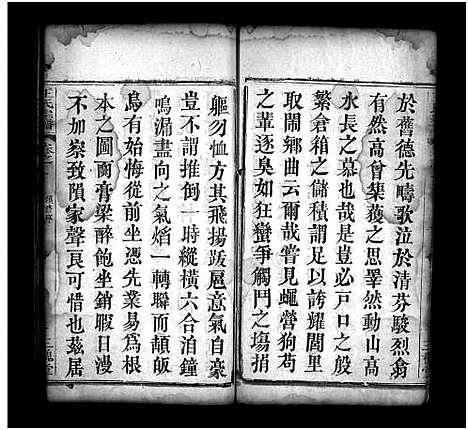 於舊德先疇歌泣於清芬駿烈翁
有然高曾榘矱之思睪然動山高
水長之慕也哉是豈必戶口之殷
繁倉箱之儲積謂足以誇耀閭里
取鬧鄉曲云爾哉嘗見蠅營狗苟
之輩逐臭如狂蠻爭觸鬥之塲捐
軀勿恤方其飛揚跋扈意氣自豪
豈不謂推倒一時縱橫六合洎鐘
鳴漏盡向之氣熖一轉瞬而顛蹶
烏有始悔從前坐憑先業易爲根
本之圖而膏粱醉飽坐銷暇日漫
不加察致隕家聲良可惜也茲居
氏宗譜
卷之一